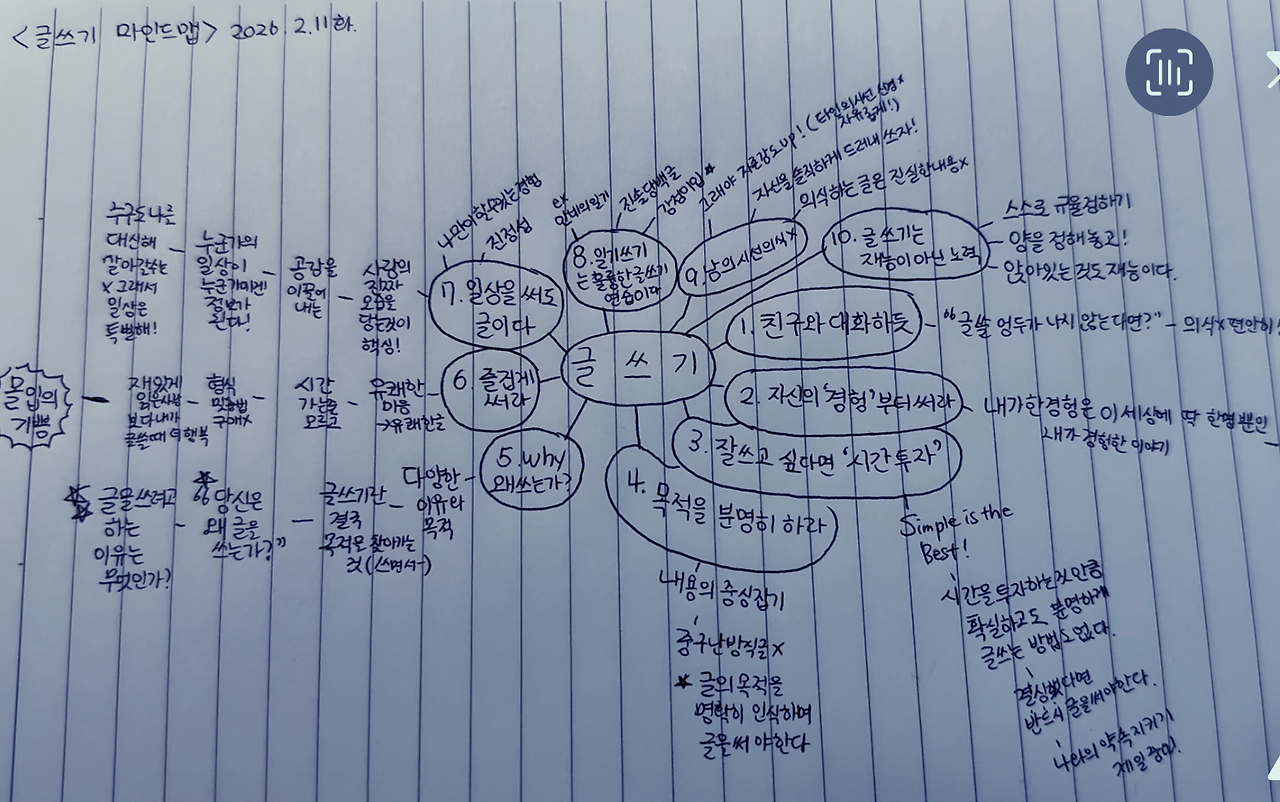 <글쓰기 마인드맵> 2026. 2. 11화.
글 쓰 기
1. 친구와 대화하듯
"글쓸 엄두가 나지 않는다면?" - 의식x 편안히!
2. 자신의 '경험'부터 써라
내가 한 경험은 이 세상에 딱 한명뿐인
내가 경험한 이야기
3. 잘쓰고 싶다면 '시간 투자'
Simple is the
Best!
시간을 투자하는것 만큼
확실하고도 분명하게
글쓰는 방법도 없다.
결심했다면
반드시 글을 써야한다.
나와의 약속 지키기
제일 중요!
4. 목적을 분명히 하라
내용의 중심잡기
중구난방식글 x
★ 글의 목적을
명확히 인식하며
글을 써야한다
5. why
왜쓰는가?
다양한
이유와
목적
글쓰기란
결국
목적을 찾아가는
것 (쓰면서~)
★
"당신은
왜 글을
쓰는가?"
★ 글을 쓰려고
★ 하는
이유는
무엇인가?
6. 즐겁게
써라
유쾌한
마음
→유쾌한글
시간
가는줄
모르고
형식
맞춤법
구애x
재밌게
보다 내가
글쓸때 더 행복
몰입의
기쁨
7. 일상을 써도
글이다
나만이 할수있는경험
진정성
사람의
진짜
모습을
담는것이
핵심!
공감을
이끌어
내는
누군가의
일상이
누군가에겐
정보가
된다!
누구도 나를
대신해
살아갈수는
x 그래서
일상은
특별해!
8. 일기쓰기
는 훌륭한 글쓰기
연습이다
ex
안네의일기
진솔담백글
감정이입 ★
9. 남의 시선 의식x
그래야 자존감도 up! (타인의 시선 신경x
자유롭게!)
자신을 솔직하게 드러내 쓰자!
의식하는 글은 진실한내용x
10. 글쓰기는
재능이 아닌 노력
스스로 규율정하기
양을 정해놓고!
앉아있는 것도 재능이다.